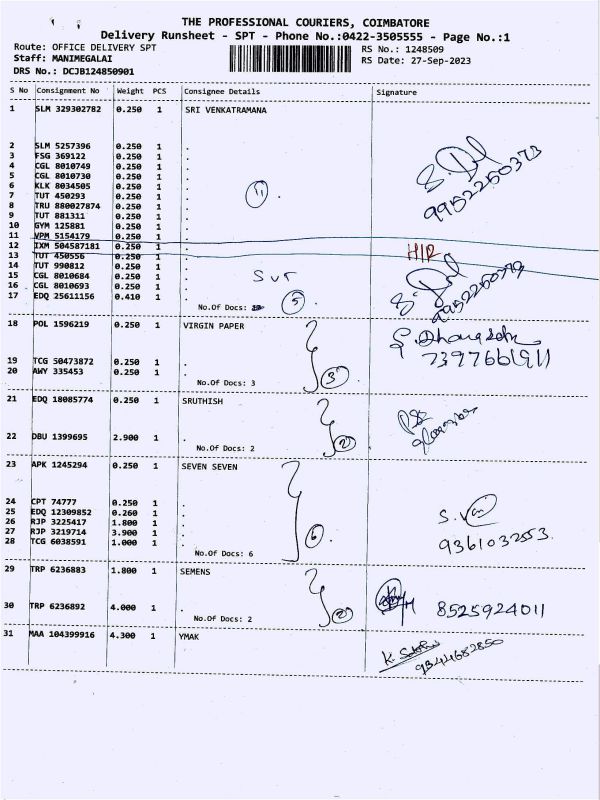 THE PROFESSIONAL COURIERS, COIMBATORE
Delivery Runsheet - SPT - Phone No.:0422-3505555 - Page No.:1
Route: OFFICE DELIVERY SPT RS No.: 1248509
Staff: MANIMEGALAI RS Date: 27-Sep-2023
DRS No.: DCJB124850901
S No Consignment No Weight PCS Consignee Details Signature
1 SLM 329302782 0.250 1 SRI VENKATRAMANA
2 SLM 5257396 0.250 1 .
3 FSG 369122 0.250 1 .
4 CGL 8010749 0.250 1 .
5 CGL 8010730 0.250 1 .
6 KLK 8034505 0.250 1 . 11 9952260373
7 TUT 450293 0.250 1 .
8 TRU 880027874 0.250 1 .
9 TUT 881311 0.250 1 .
10 GYM 125881 0.250 1 .
11 VPM 5154179 0.250 1 .
12 IXM 504587181 0.250 1 . HIR
13 TUT 450556 0.250 1 .
14 TUT 990812 0.250 1 .
15 CGL 8010684 0.250 1 . SVR
16 CGL 8010693 0.250 1 . 9952260373
17 EDQ 25611156 0.410 1 .
No.Of Docs: 5
18 POL 1596219 0.250 1 VIRGIN PAPER
7397661911
19 TCG 50473872 0.250 1 .
20 AWY 335453 0.250 1 . 3
No.Of Docs: 3
21 EDQ 18085774 0.250 1 SRUTHISH
22 DBU 1399695 2.900 1 . 2
No.Of Docs: 2
23 APK 1245294 0.250 1 SEVEN SEVEN
24 CPT 74777 0.250 1 .
25 EDQ 12309852 0.260 1 .
26 RJP 3225417 1.800 1 .
27 RJP 3219714 3.900 1 . 6
28 TCG 6038591 1.000 1 . 9361032553
No.Of Docs: 6
29 TRP 6236883 1.800 1 SEMENS
30 TRP 6236892 4.000 1 . 2 8525924011
No.Of Docs: 2
31 MAA 104399916 4.300 1 YMAK
9344682850